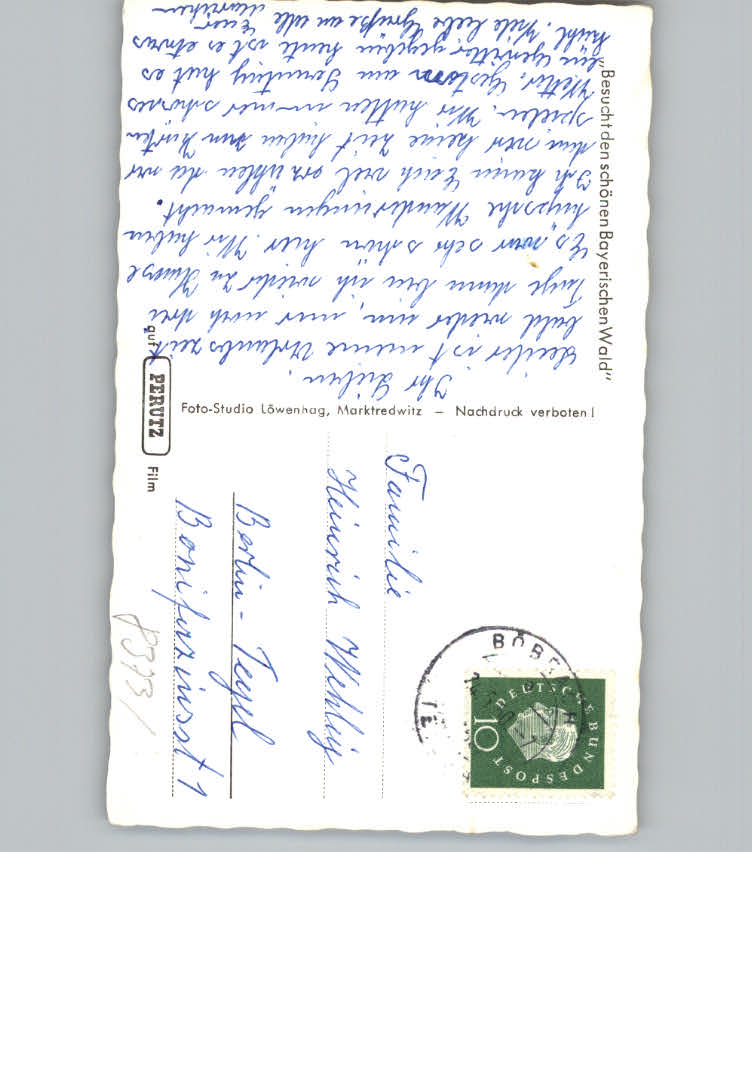 Ihr Lieben.
Leider ist meine Urlaubszeit
bald wieder um, nur noch drei
Tage dann bin ich wieder zu Hause
Es war sehr schön hier. Wir haben
hupsche Wanderungen gemacht.
Ich kann Euch viel erzählen da wir
dan keine zeit haben zun Karten
spielen. Wir hatten immer schönes
Wetter. Gestern am Sonntag hat es
ein Gewitter gegeben heute ist es etwas
kühl. Viele liebe Grüße an alle Euer
"Besucht den schönen Bayerischen Wald"
Foto-Studio Löwenhag, Marktredwitz – Nachdruck verboten!
auf PERUTZ Film
Familie
Heinrich Wehlig
Berlin - Tegel
Bonifaziusst 1
DEUTSCHE BUNDESPOST
10
8373/